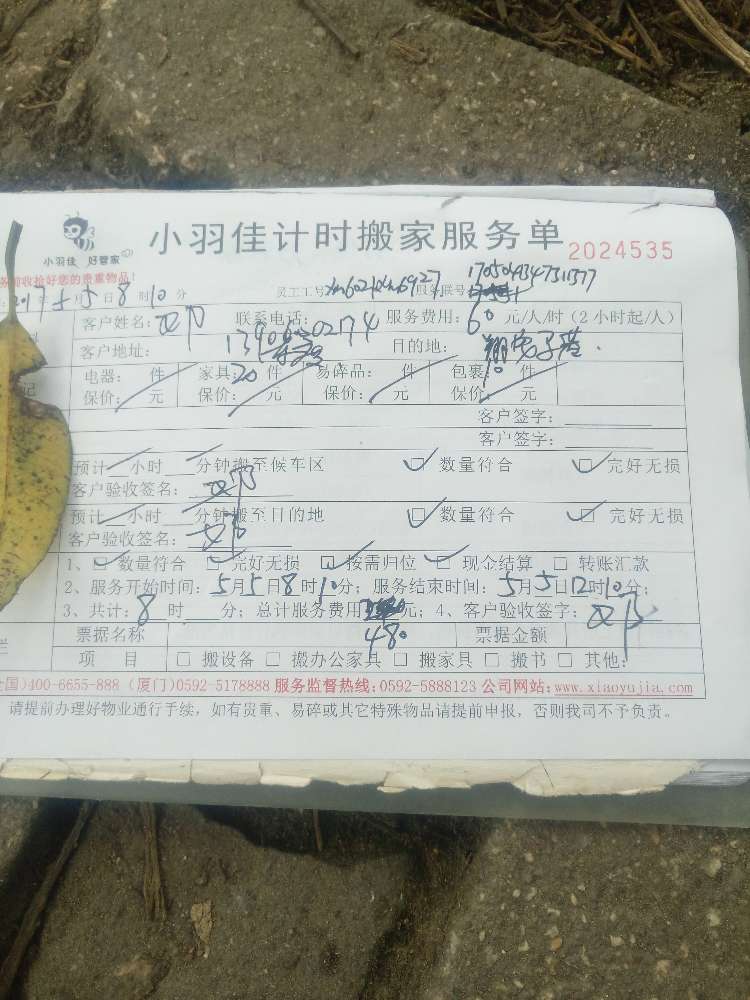 小羽佳计时搬家服务单 2024535
小羽佳 好管家
务前收拾好您的贵重物品!
2017年5月5日8时10分 员工工号 服务联号 17050434731577
客户姓名: 联系电话: 服务费用:60元/人/时(2小时起/人)
客户地址: 目的地:
电器: 件 家具:20件 易碎品: 件 包裹: 10件
保价: 元 保价: 元 保价: 元 保价: 元
客户签字:
客户签字:
预计 小时 分钟搬至候车区 数量符合 完好无损
客户验收签名:
预计 小时 分钟搬至目的地 数量符合 完好无损
客户验收签名:
1、 数量符合 完好无损 按需归位 现金结算 转账汇款
2、服务开始时间:5月5日8时10分;服务结束时间:5月5日12时10分;
3、共计:8时 分;总计服务费用 元;4、客户验收签字:
480
票据名称 票据金额
项 目 搬设备 搬办公家具 搬家具 搬书 其他:
国)400-6655-888 (厦门)0592-5178888 服务监督热线:0592-5888123 公司网站:www.xiaoyujia.com
请提前办理好物业通行手续,如有贵重、易碎或其它特殊物品请提前申报,否则我司不予负责。